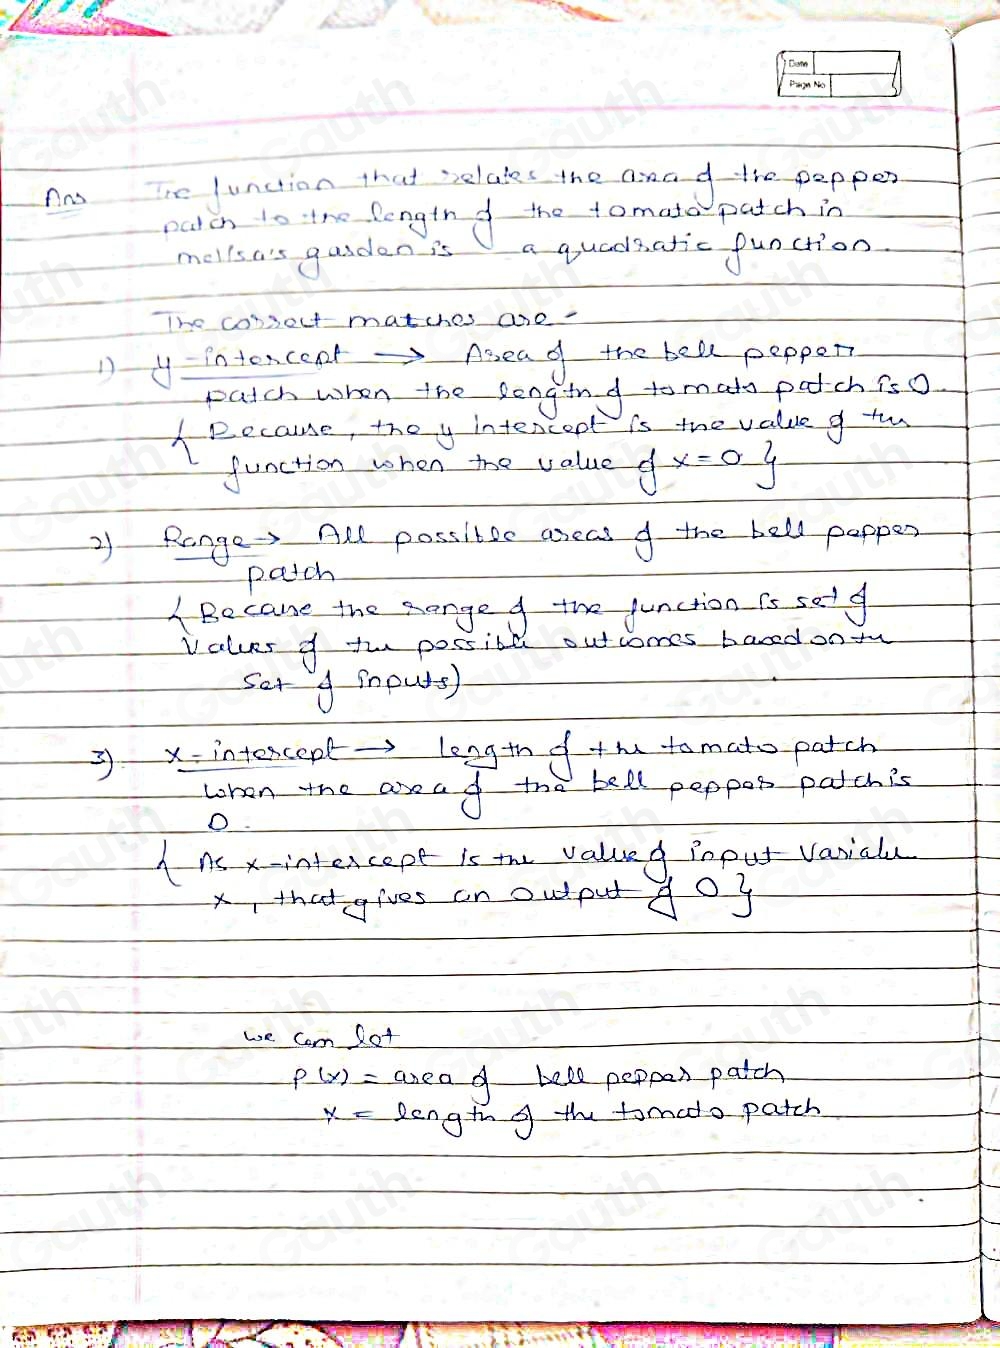 Date
Page No
Ans The function that relates the area of the pepper
patch to the length of the tomato patch in
mellsa's garden is a quadratic function.
The correct matches are -
1) y-intercept → Area of the bell pepper
patch when the length of tomato patch is 0.
{ Because, the y intercept is the value of the
function when the value of x = 0 }
2) Range → All possible areas of the bell pepper
patch
{ Because the range of the function is set of
values of the possible outcomes based on the
set of inputs)
3) x-intercept → length of the tomato patch
when the area of the bell pepper patch is
0.
{ As x-intercept is the value of input variable
x, that gives an output of 0 }
we can let
P(x) = area of bell pepper patch
x = length of the tomato patch